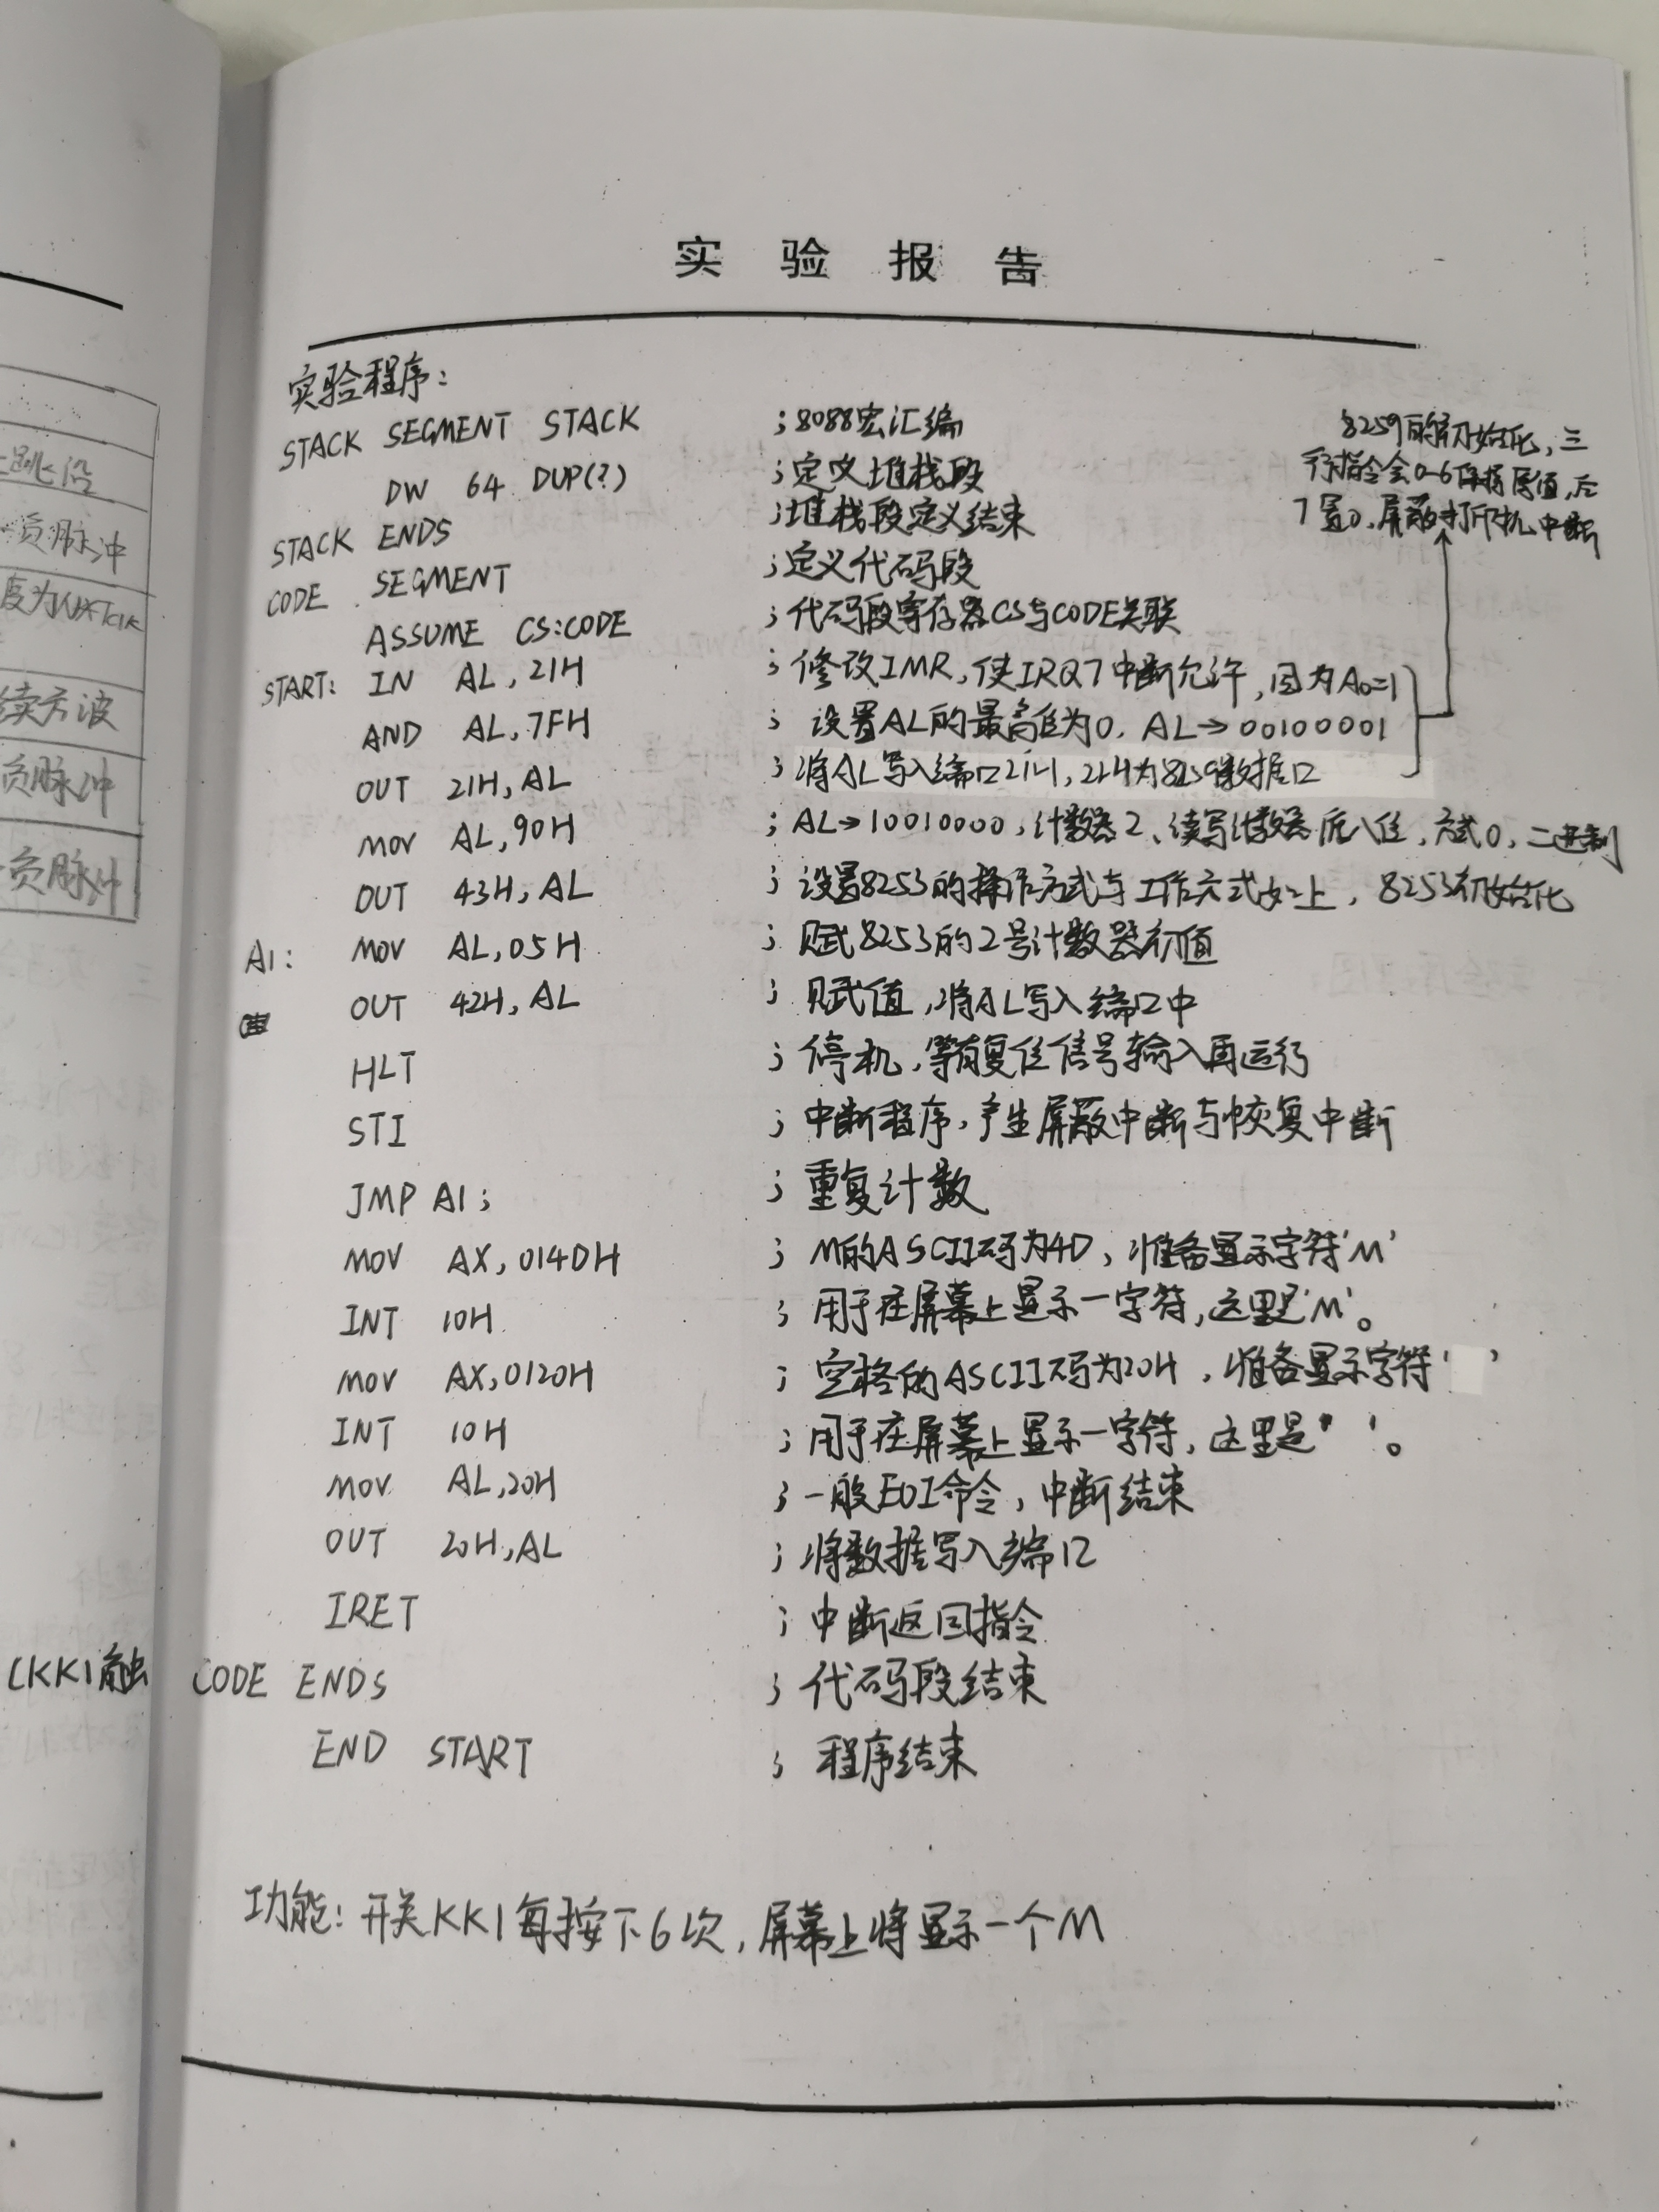 实验报告
实验程序:
STACK SEGMENT STACK ;8088宏汇编
DW 64 DUP(?) ;定义堆栈段
STACK ENDS ;堆栈段定义结束
CODE SEGMENT ;定义代码段
ASSUME CS:CODE ;代码段寄存器CS与CODE关联
START: IN AL,21H ;修改IMR,使IRQ7中断允许,因为A0=1
AND AL,7FH ;设置AL的最高位为0,AL→00100001
OUT 21H,AL ;将AL写入端口21H,21H为8259数据口
8259的初始化,三
行指令会0-6保持原值,后
7置0,屏蔽打印机中断
MOV AL,90H ;AL→10010000,计数器2、读写计数器低八位,方式0,二进制
OUT 43H,AL ;设置8253的操作方式与工作方式如上,8253初始化
A1: MOV AL,05H ;赋8253的2号计数器初值
OUT 42H,AL ;赋值,将AL写入端口中
HLT ;停机,等有复位信号输入再运行
STI ;中断程序,产生屏蔽中断与恢复中断
JMP A1; ;重复计数
MOV AX,014DH ;M的ASCII码为4D,准备显示字符'M'
INT 10H ;用于在屏幕上显示一字符,这里是'M'。
MOV AX,0120H ;空格的ASCII码为20H,准备显示字符' '
INT 10H ;用于在屏幕上显示一字符,这里是' '。
MOV AL,20H ;一般EOI命令,中断结束
OUT 20H,AL ;将数据写入端口
IRET ;中断返回指令
CODE ENDS ;代码段结束
END START ;程序结束
功能:开关KK1每按下6次,屏幕上将显示一个M
上跳沿
负脉冲
度为
续方波
负脉冲
负脉冲
(KK1触